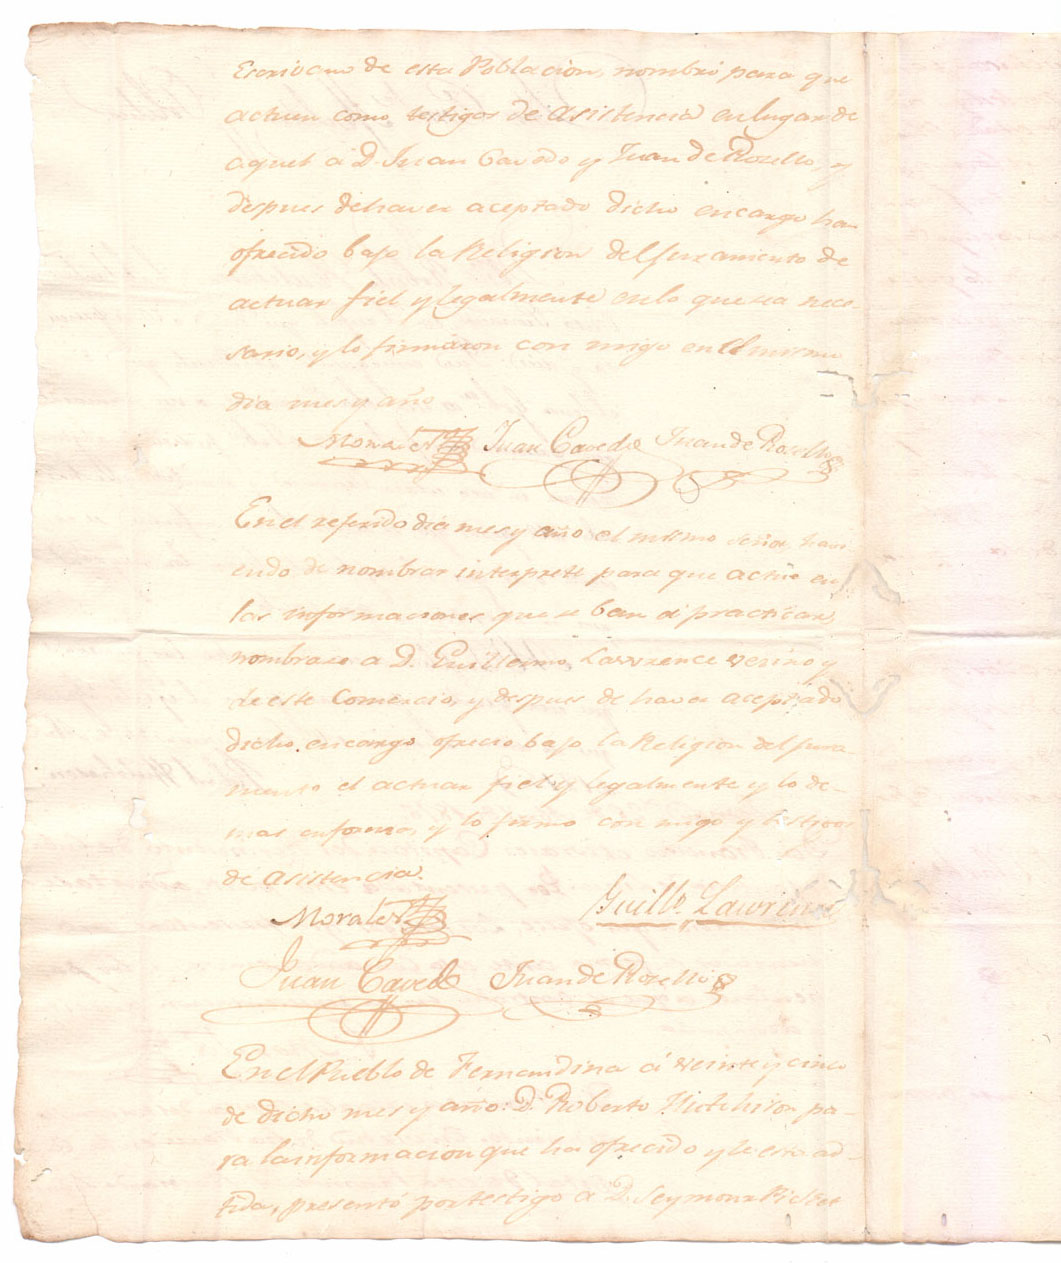 Escrivano de esta Poblacion, nombró para que
actuen como testigos de asistencia en lugar de
aquel á D. Juan Cavedo y Juan de Rosello, y
despues de haver aceptado dicho encargo han
ofrecido bajo la Religion del Juramento de
actuar fiel y legalmente en lo que sea nece-
sario, y lo firmaron con migo en el mismo
dia mes y año
Morales Juan Cavedo Juan de Rosello
En el referido dia mes y año el mismo Señor havi
endo de nombrar interprete para que actúe en
las informaciones que se ban á practicar,
nombrase a D. Guillermo Lawrence vecino y
de este Comercio, y despues de haver aceptado
dicho encargo ofrecio bajo la Religion del Jura-
mento el actuar fiel y legalmente y lo de-
mas en forma, y lo firmo con migo y testigos
de asistencia.
Morales Guillo. Lawrence
Juan Cavedo Juan de Rosello
En el Pueblo de Fernandina á veinte y cinco
de dicho mes y año: D. Roberto Hutchison pa-
ra la informacion que ha ofrecido y le esta ad-
tida, presentó por testigo a D. Seymour